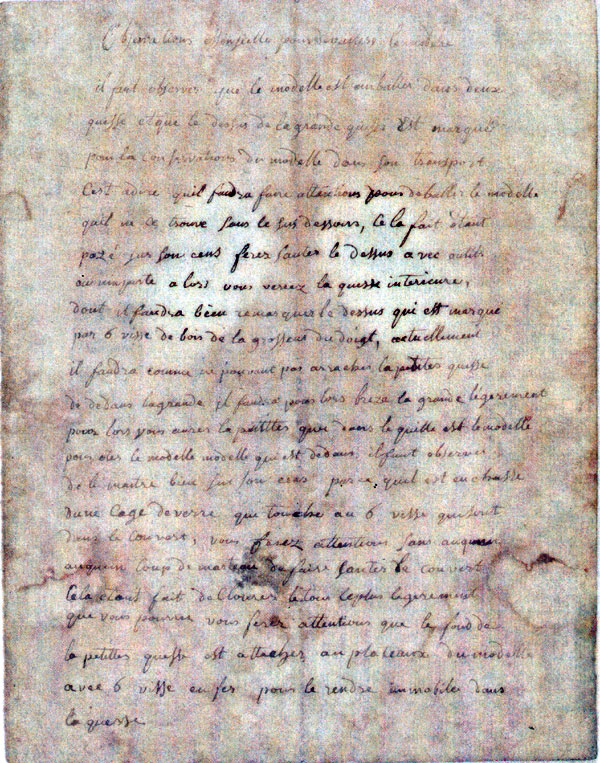 Observations Essentielle pour deballer le modele
il faut observer que le modelle est emballer dans deux
quesse et que le dessus de la grande quesse est marqué
pour la Conservations du modelle dans son transport
C'est adire quil faudra faire attentions pour deballer le modelle
quil ne ce trouve sous le sus dessous, cela fait étant
pozé sur son cens ferez sauter le dessus avec outils
aucunporte alors vous verez la quesse interieure,
dont il faudra bien remarquer le dessus qui est marque
par 6 visse de bois de la grosseur du doigt, actuellement
il faudra comme ne pouvant pas arracher la petites quesse
de dedans lagrande il faudra pour lors briza la grande legerement
pour lors vous aurez la petittes quesse dans le quelle est le modelle
pour oter le modelle modelle qui est dedans il faut observer
de le maitre bien sur son cens parce quel est enchasse
dune Cage de verre qui touche au 6 visse qui sont
dans le Couvert, vous ferez attentions sans auquun
auquun Coup de marteau de faire sauter le couvert
Cela étant fait de Clourez le tout le plus legerement
que vous pourrez vous ferez attentions que le fond de
la petittes quesse est attacher au plateaux du modelle
avec 6 visse en fer pour le rendre immobile dans
la quesse